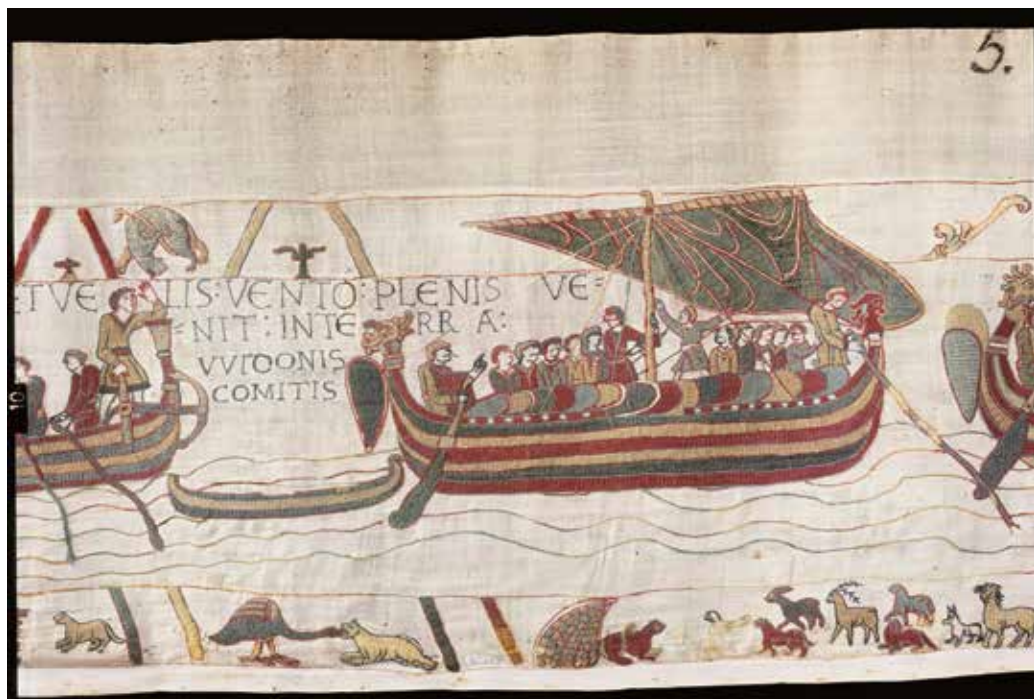 5.
ET VE LIS: VENTO: PLENIS VE=
=NIT: INTE RR A:
VVIDONIS
COMITIS
10